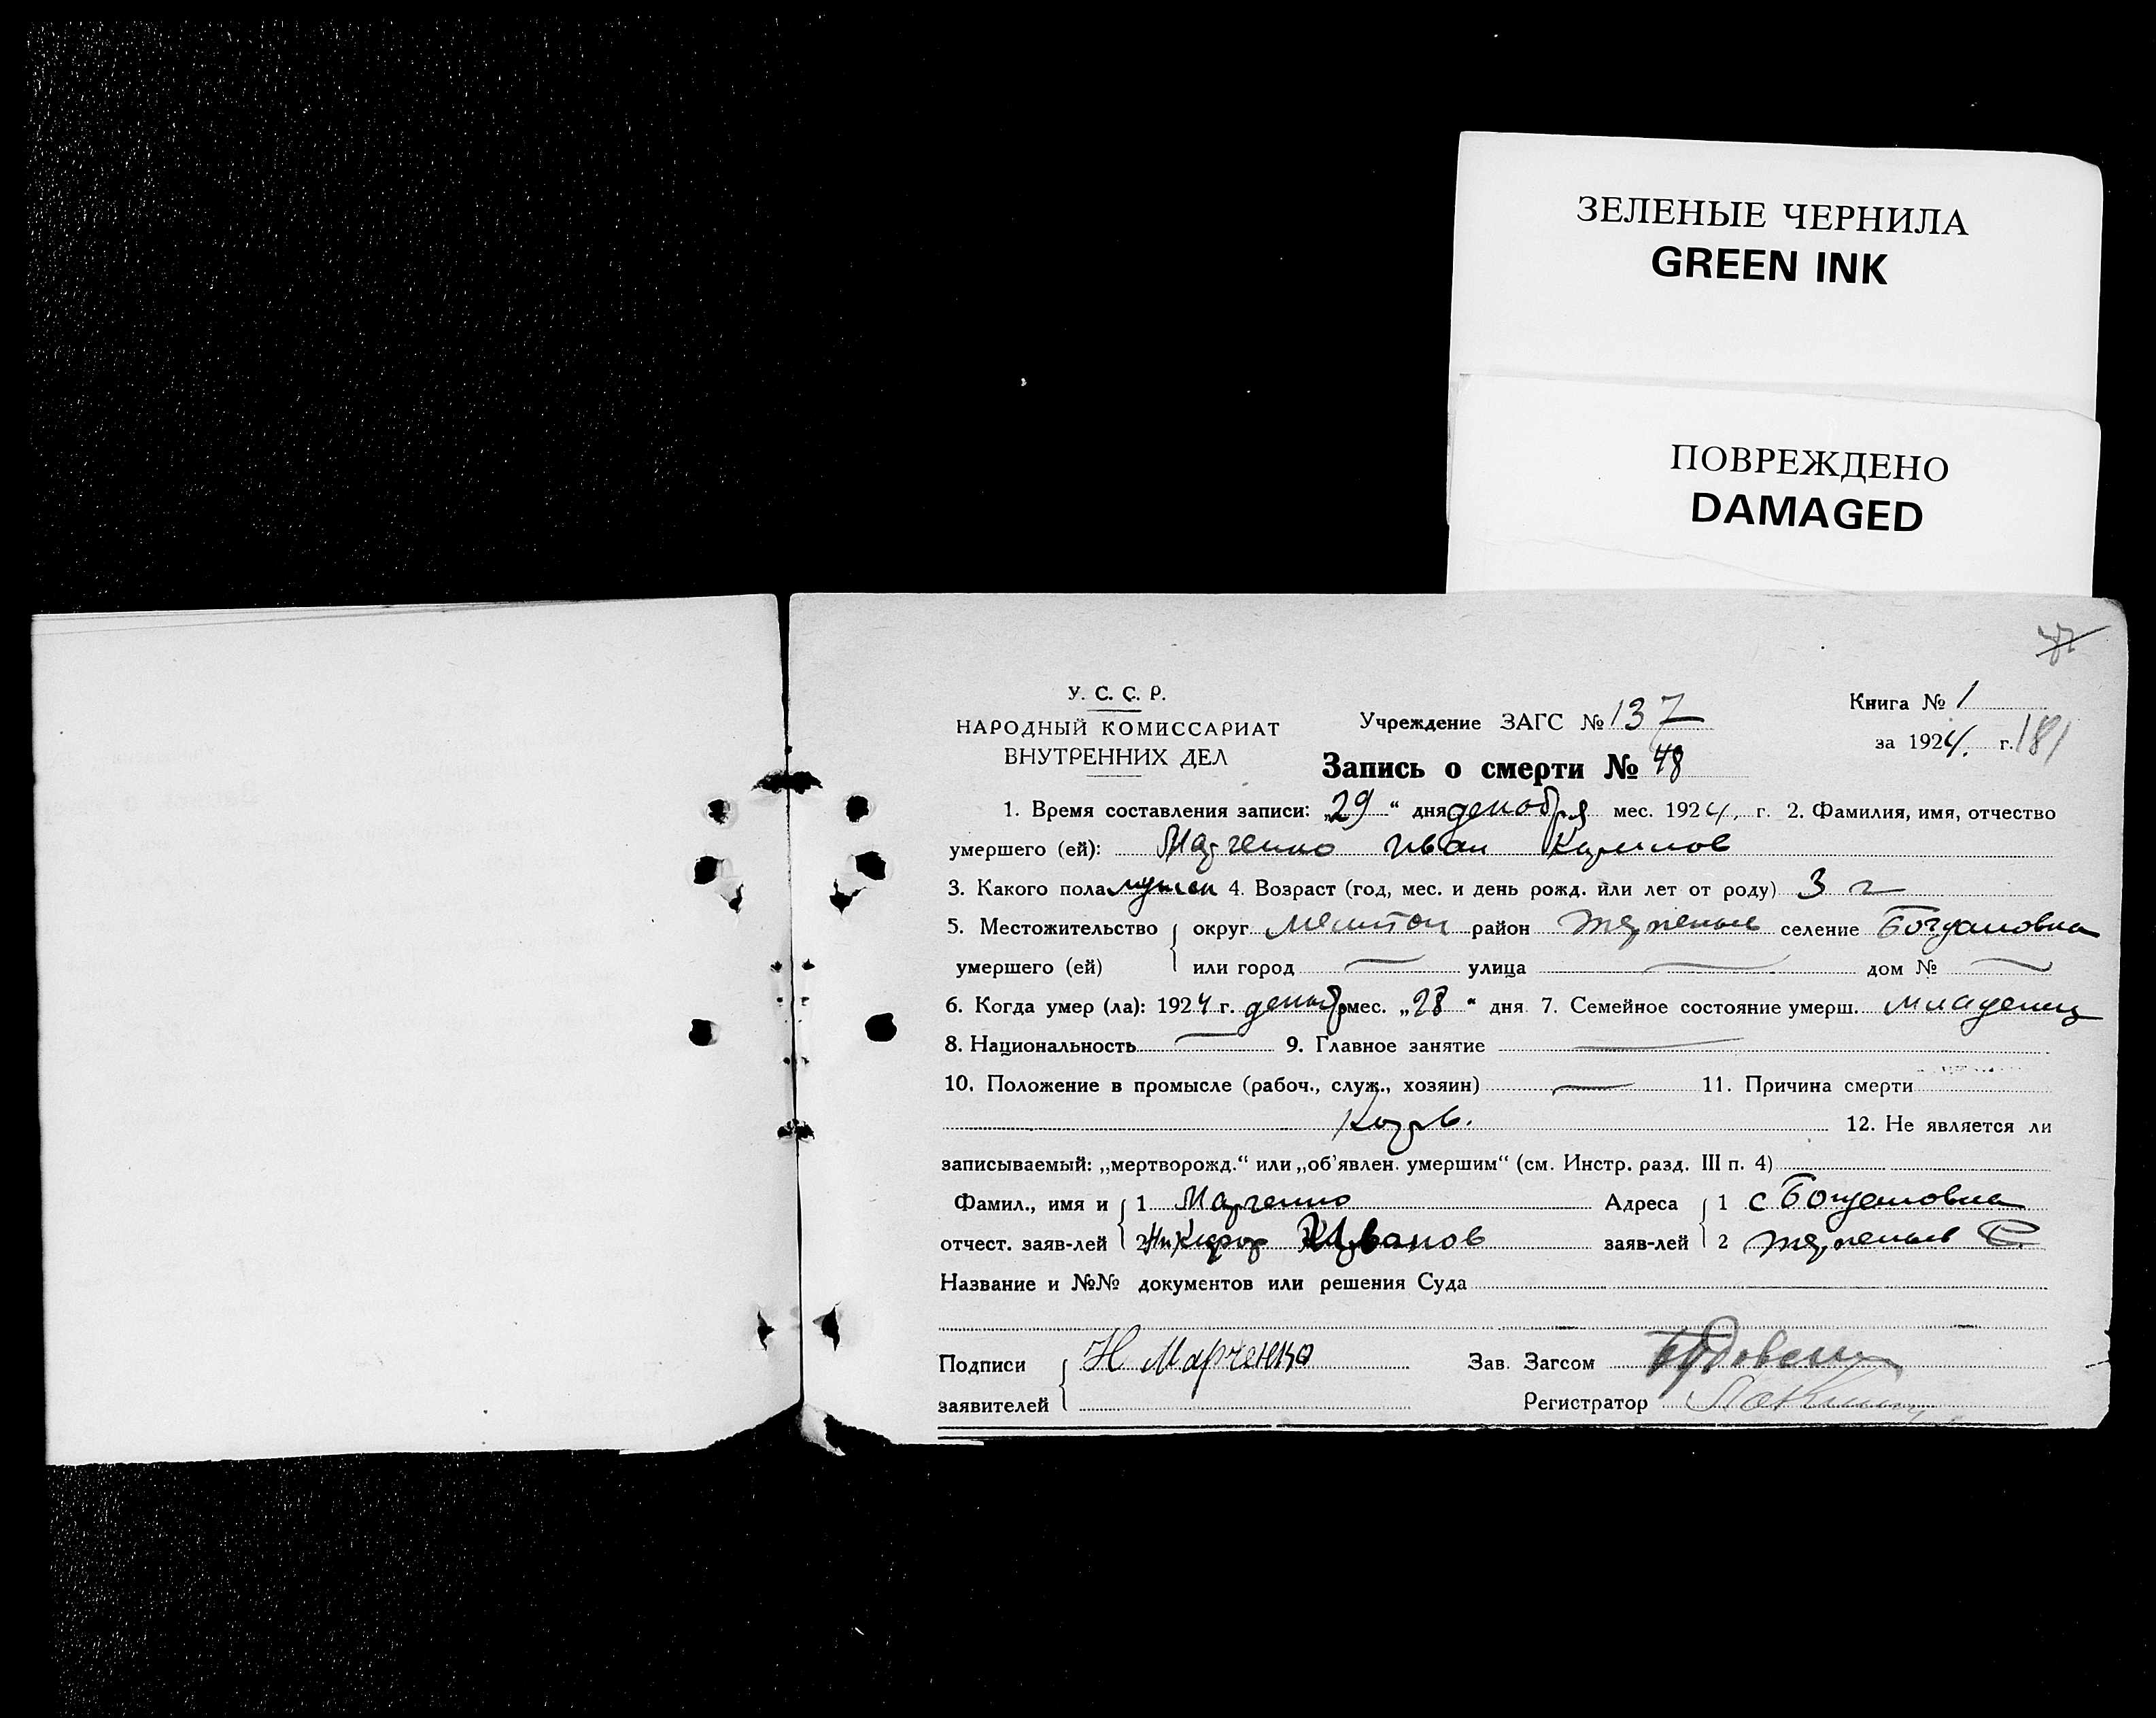 ЗЕЛЕНЫЕ ЧЕРНИЛА
GREEN INK
ПОВРЕЖДЕНО
DAMAGED
У. С. С. Р.
НАРОДНЫЙ КОМИССАРИАТ
ВНУТРЕННИХ ДЕЛ
Учреждение ЗАГС № 137
Книга № 1
за 1924. г. 181
Запись о смерти № 48
1. Время составления записи: „29“ дня декабря мес. 1924, г. 2. Фамилия, имя, отчество
умершего (ей): Марченко Иван
3. Какого пола мужск 4. Возраст (год, мес. и день рожд. или лет от роду) 3 г
5. Местожительство округ Мелитоп район селение Богдановка
умершего (ей) или город — улица — дом № —
6. Когда умер (ла): 1924 г. декабр мес. „28“ дня 7. Семейное состояние умерш. младенец
8. Национальность — 9. Главное занятие —
10. Положение в промысле (рабоч., служ., хозяин) — 11. Причина смерти
Корь. 12. Не является ли
записываемый: „мертворожд.“ или „об'явлен. умершим“ (см. Инстр. разд. III п. 4)
Фамил., имя и 1 Марченко Адреса 1 с Богдановка
отчест. заяв-лей 2 Никифор заяв-лей 2
Название и №№ документов или решения Суда
Подписи Н Марченко Зав. Загсом
заявителей Регистратор